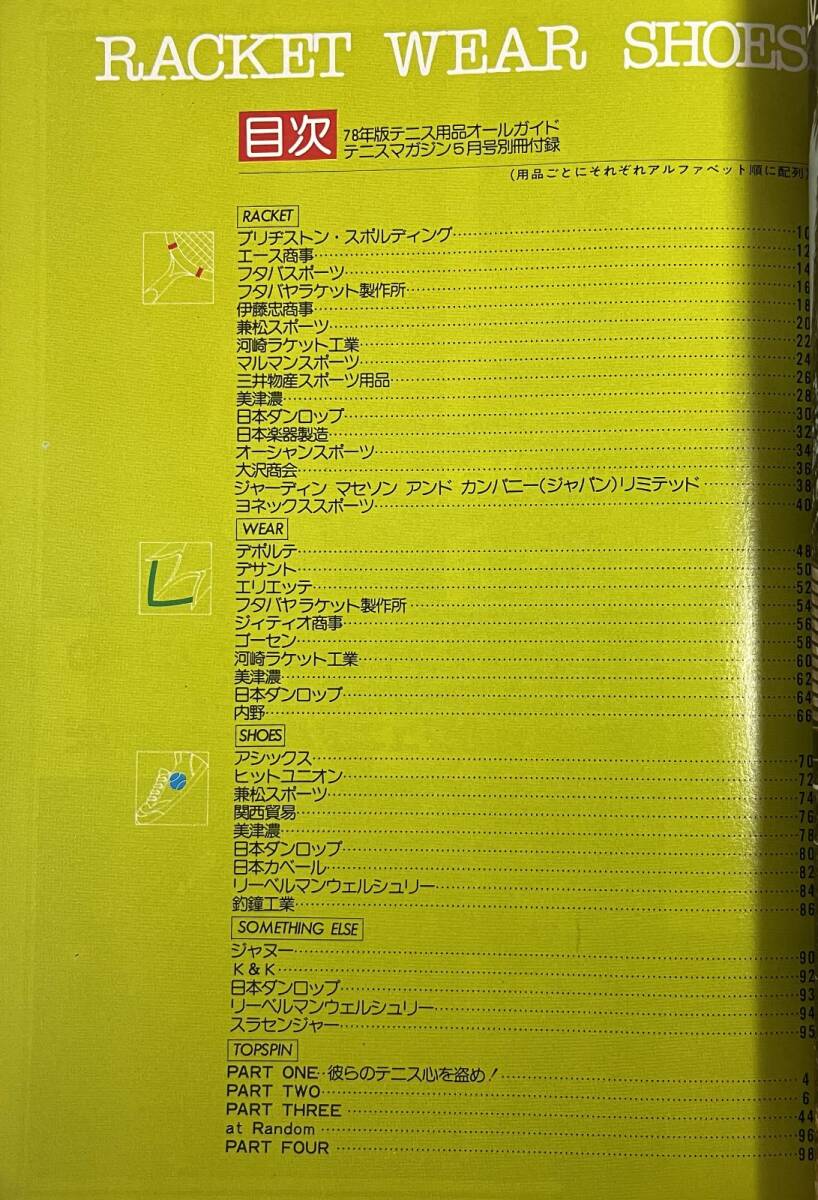 RACKET WEAR SHOES
目次
78年版テニス用品オールガイド
テニスマガジン5月号別冊付録
(用品ごとにそれぞれアルファベット順に配列)
RACKET
ブリヂストン・スポルディング 10
エース商事 12
フタバスポーツ 14
フタバヤラケット製作所 16
伊藤忠商事 18
兼松スポーツ 20
河崎ラケット工業 22
マルマンスポーツ 24
三井物産スポーツ用品 26
美津濃 28
日本ダンロップ 30
日本楽器製造 32
オーシャンスポーツ 34
大沢商会 36
ジャーディン マセソン アンド カンパニー(ジャパン)リミテッド 38
ヨネックススポーツ 40
WEAR
デポルテ 48
デサント 50
エリエッテ 52
フタバヤラケット製作所 54
ジィティオ商事 56
ゴーセン 58
河崎ラケット工業 60
美津濃 62
日本ダンロップ 64
内野 66
SHOES
アシックス 70
ヒットユニオン 72
兼松スポーツ 74
関西貿易 76
美津濃 78
日本ダンロップ 80
日本カベール 82
リーベルマンウェルシュリー 84
釣鐘工業 86
SOMETHING ELSE
ジャヌー 90
K&K 92
日本ダンロップ 93
リーベルマンウェルシュリー 94
スラセンジャー 95
TOPSPIN
PART ONE‥彼らのテニス心を盗め! 4
PART TWO 6
PART THREE 44
at Random 96
PART FOUR 98